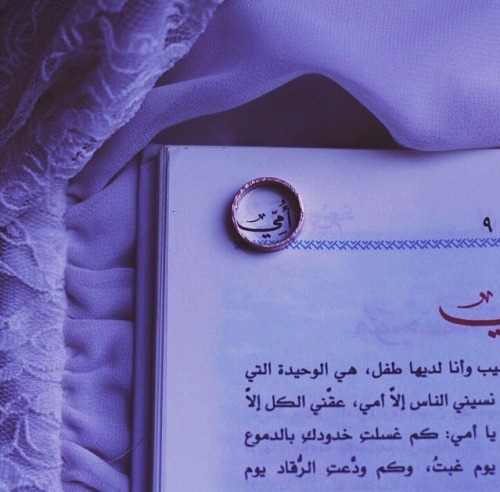 أُمّي
٩
ـيب وأنا لديها طفل، هي الوحيدة التي
نسيني الناس إلاَّ أمي، عقَّني الكل إلاَّ
يا أمي: كم غسلتِ خدودكِ بالدموع
يوم غبتُ، وكم ودَّعتِ الرُّقاد يوم